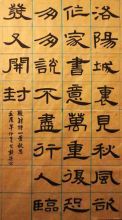 洛陽城裏見秋風欲
作家書意萬重復恐
匆匆說不盡行人臨
發又開封